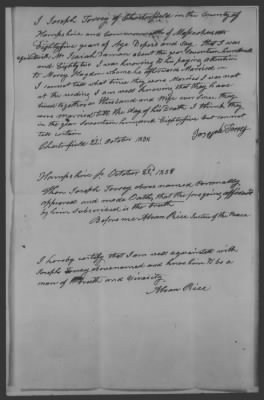 I Joseph Tovey of Chesterfield in the County of
Hampshire and Commonwealth of Massachusetts
Eightyfive years of Age Depose and say that I was
acquainted Mr Isaiah Tannan about the year Seventeen hundred
and Eightytwo I was knowing to his paying attention
to Mercy Haydon whom he afterward Married
I cannot tell what time they were Married I was not
at the weding I am well knowing that they have
lived together as Husband and Wife ever since they
were married till the Day of his Death I think they
in the year Seventeen hundred Eightyfive but cannot
tell certain
Chesterfield 22d October 1838
Joseph Tovey
Hampshire ss October 23d 1838
Then Joseph Tovey above named Personally
appeared and made Oath that the foregoing affidavit
by him Subscribed is the truth
Before me Alvan Rice Justice of the Peace
I hereby certify that I am well acquainted with
Joseph Tovey abovenamed and know him to be a
man of Truth and Veracity
Alvan Rice